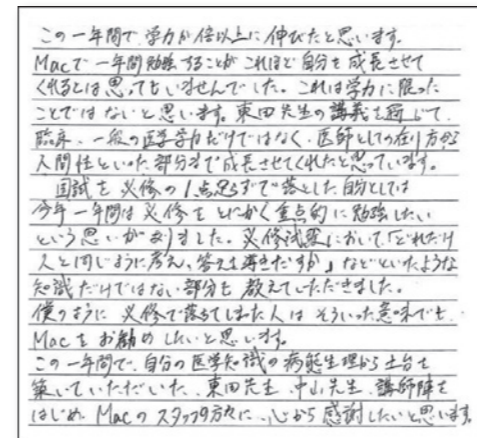 この一年間で、学力が倍以上に伸びたと思います。
Macで一年間勉強することがこれほど自分を成長させて
くれるとは思ってもいませんでした。これは学力に限った
ことではないと思います。東田先生の講義を通じて、
臨床、一般の医学学力だけではなく、医師としての在り方から
人間性といった部分まで成長させてくれたと思っています。
国試を必修の1点足らずで落とした自分としては
今年一年間は必修をとにかく重点的に勉強したい
という思いがありました。必修試験において「どれだけ
人と同じように考え、答えを導きだすか」などといったような
知識だけではない部分も教えていただきました。
僕のように必修で落ちてしまった人はそういった意味でも
Macをお勧めしたいと思います。
この一年間で、自分の医学知識の病態生理から土台を
築いていただいた、東田先生、中山先生、講師陣を
はじめ、Macのスタッフの方々に、心から感謝したいと思います。